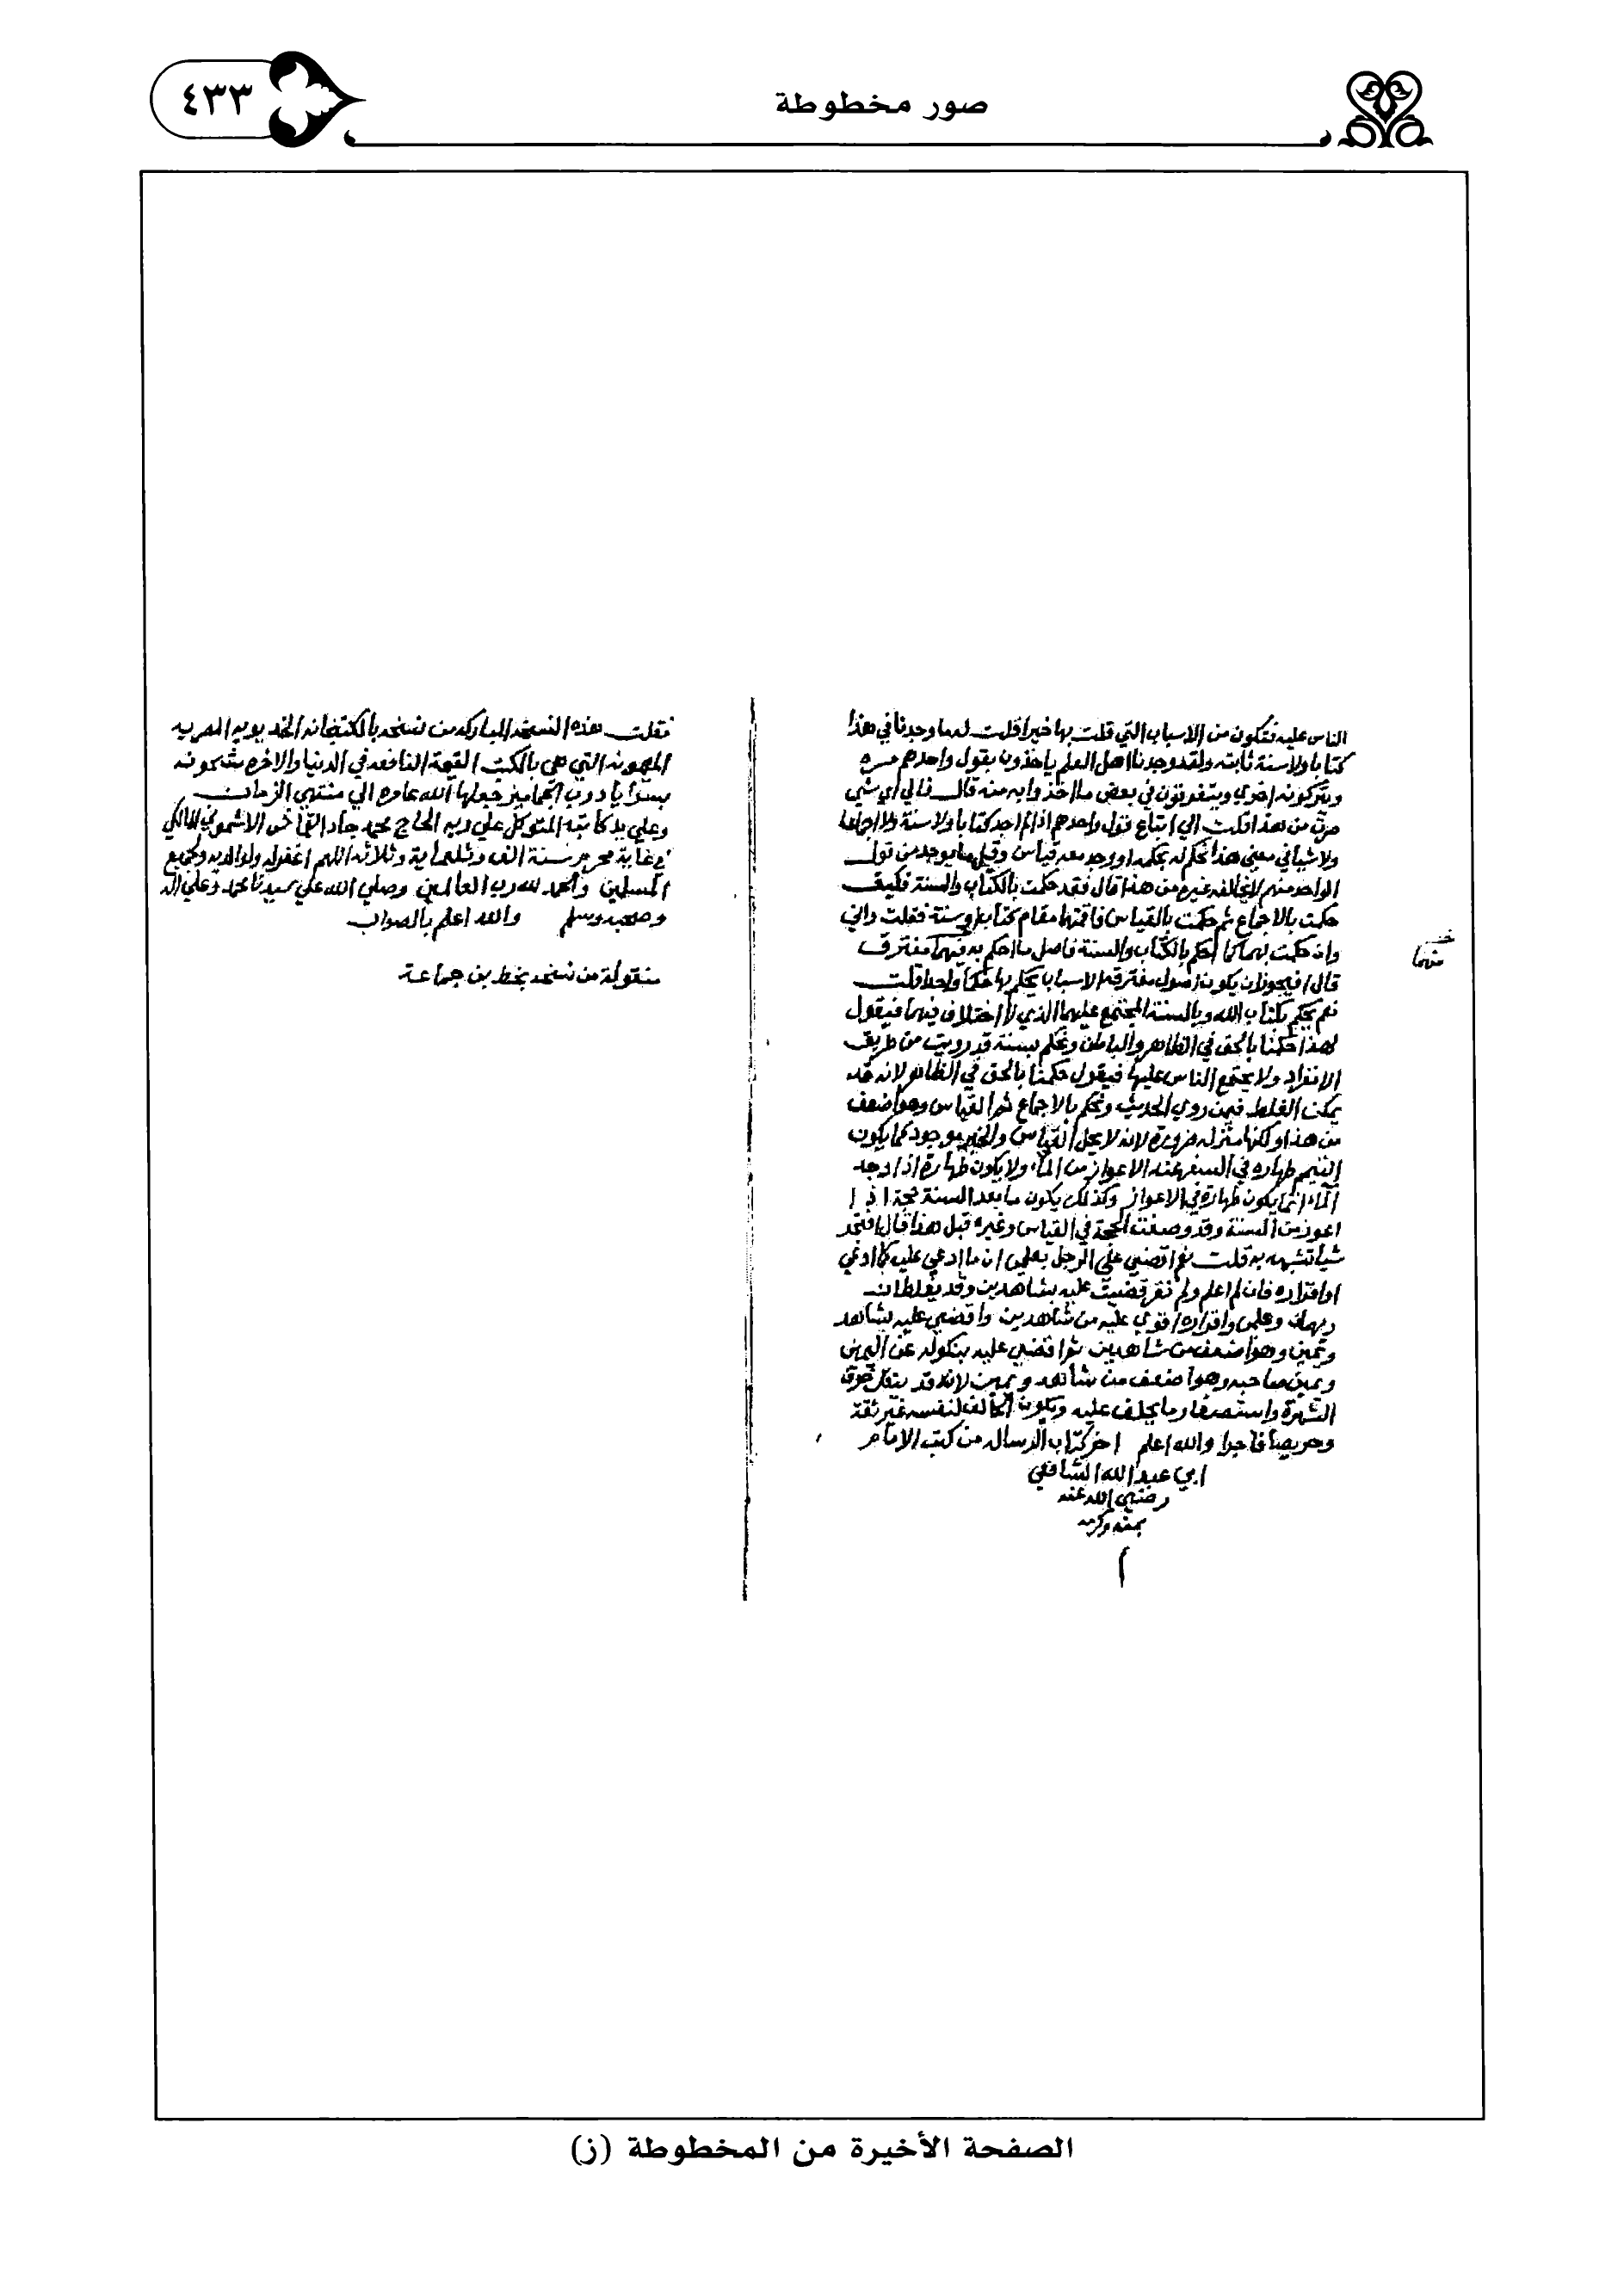 صور مخطوطة
٤٣٣
الناس عليه فتكون من الاسباب التي قلت بها خبرا قلت له ما وجدنا في هذا
كتابا ولا سنة ثابته ولقد وجدنا اهل العلم ياخذون بقول واحدهم مره
ويتركونه اخري ويتفرقون في بعض ما اخذوا به منه قال فالي اي شي
صرت من هذا قلت الي اتباع قول واحدهم اذا لم اجد كتابا ولا سنة ولا اجماعا
ولا شيا في معني هذا يحكم له بحكمه او وجد معه قياس وقيل ما يوجد من قول
الواحد منهم لا يخالفه غيره من هذا قال فقد حكمت بالكتاب والسنة فكيف
حكمت بالاجماع ثم حكمت بالقياس فاقمتهما مقام كتاب او سنة فقلت واني
وان حكمت بهما كما احكم بالكتاب والسنة فاصل ما احكم به فيهما مفترق
منهما
قال افيجوز ان يكون اصول مفترقه الاسباب يحكم بها حكما واحدا قلت
نعم يحكم بكتاب الله وبالسنة المجتمع عليهما الذي لا اختلاف فيهما فيقول
لهذا حكمنا بالحق في الظاهر والباطن ونحكم بسنة قد رويت من طريق
الانفراد ولا يجتمع الناس عليها فيقول حكمنا بالحق في الظاهر لانه قد
يمكن الغلط فيمن روي الحديث ونحكم بالاجماع ثم القياس وهو اضعف
من هذا ولكنها منزله ضرورة لانه لا يحل القياس والخبر موجود كما يكون
التيمم طهاره في السفر عند الاعواز من الماء ولا يكون طهارة اذا وجد
الماء انما يكون طهارة في الاعواز وكذلك يكون ما بعد السنة حجة اذا
اعوز من السنة وقد وصفت الحجة في القياس وغيره قبل هذا قال افتجد
شيا تشبهه به قلت نعم اقضي علي الرجل بعلمي ان ما ادعي عليه كما ادعي
او اقراره فان لم اعلم ولم يقر قضيت عليه بشاهدين وقد يغلطان
ويهمان وعلمي واقراره اقوي عليه من شاهدين واقضي عليه بشاهد
ويمين وهو اضعف من شاهدين ثم اقضي عليه بنكوله عن اليمين
ويمين صاحبه وهو اضعف من شاهد ويمين لانه قد ينكل خوف
الشهرة واستصغار ما يحلف عليه ويكون الحالف لنفسه غير ثقة
وحريصا فاجرا والله اعلم اخر كتاب الرساله من كتب الامام
ابي عبد الله الشافعي
رضي الله عنه
بمنه وكرمه
نقلت هذه النسخه المباركه من نسخه بالكتبخانه الخديويه المصريه
التي هي بالكتب القيمة النافعه في الدنيا والاخره مشحونه
بسرايا درب الجماميز جعلها الله عامره الي منتهي الزمان
وعلي يد كاتبه المتوكل علي ربه الحاج محمد جاد الاشموني المالكي
في غاية محرم سنة الف وثلثماية وثلاثه اللهم اغفر له ولوالديه ولجميع
المسلمين والحمد لله رب العالمين وصلي الله علي سيدنا محمد وعلي اله
وصحبه وسلم والله اعلم بالصواب
منقولة من نسخه بخط بن جماعة
الصفحة الأخيرة من المخطوطة (ز)